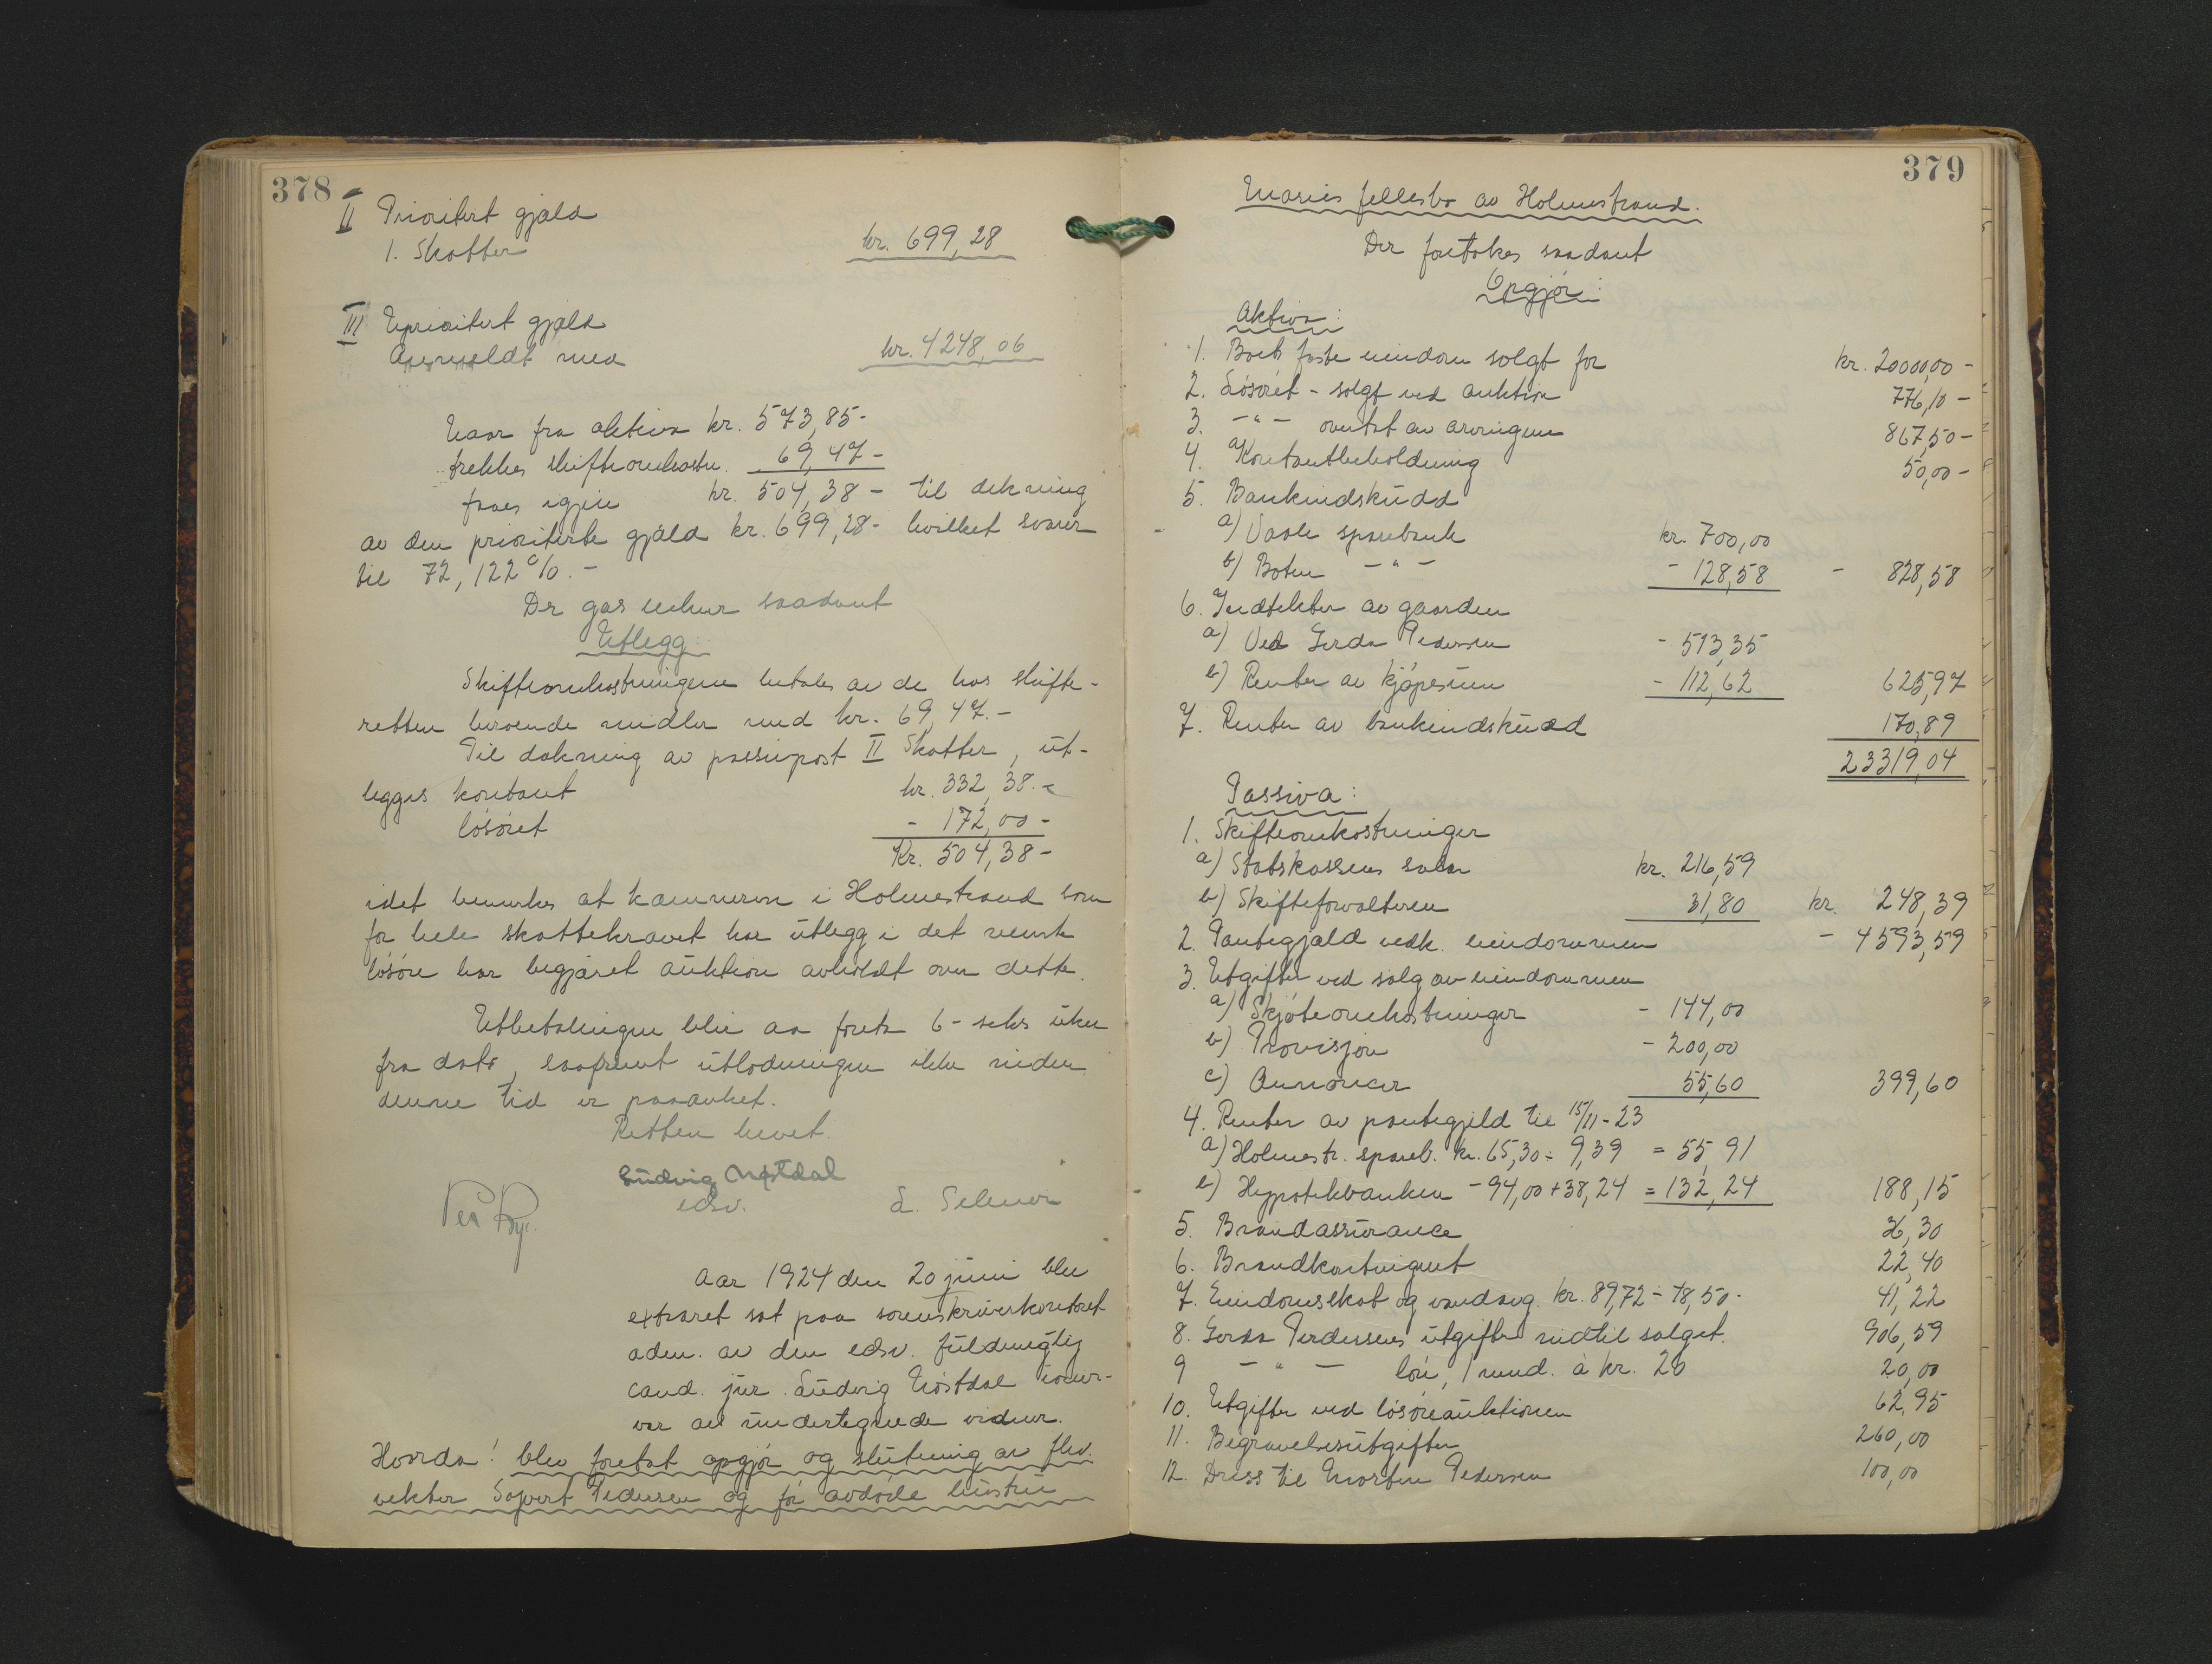 378
II Prioritert gjæld
1. Skatter kr. 699,28
III Uprioritert gjæld
Anmeldt med kr. 4248,06
Naar fra aktiva kr. 573,85-
trekkes skifteomkostn. 69,47-
faaes igjen kr. 504,38- til dekning
av den prioriterte gjæld kr. 699,28- hvilket svarer
til 72,122 %.-
Der gøres saadant
Utlegg
Skifteomkostningene betales av de hos skifte-
retten beroende midler med kr. 69,47.-
Til dækning av passivpost II Skatter, út-
legges kontant kr. 332,38.-
løsøret - 172,00-
Kr. 504,38-
idet bemerkes at kæmneren i Holmestrand som
for hele skattekravet har útlegg i det nevnte
løsøre har begjæret aúktion avholdt over dette.
Utbetalingen blir aa foreta 6-seks úker
fra dato, saafremt útlodningen ikke inden
denne tid er paaanket.
Retten hevet.
Lúdvig Nøstdal
edsv.
L. Selmer
Aar 1924 den 20 júni blev
extraret sat paa sorenskriverkontoret
adm. av den edsv. fúldmegtig
cand. júr. Lúdvig Nøstdal i nær-
vær av úndertegnede vidner.
Hvorda! blev foretat opgjør og slútning av fhv.
vekter Syvert Pedersen og før avdøde hústrú
379
Maries fellesbo av Holmestrand.
Der foretokes saadant
Opgjør:
Aktiva:
1. Boets faste eiendom solgt for kr. 20000,00-
2. Løsøret - solgt ved auktion 776,10-
3. -"- overtat av arvingene 867,50-
4. Kontantbeholdning 50,00-
5. Bankindskúdd
a) Vaale sparebank kr. 700,00
b) Botne -"- - 128,58 - 828,58
6. Indtekter av gaarden
a) Ved Gerda Pedersen - 513,35
b) Renter av kjøpesúm - 112,62 625,97
7. Renter av bankindskúdd 170,89
23319,04
Passiva:
1. Skifteomkostninger
a) Statskassens salær kr. 216,59
b) Skifteforvalteren 31,80 kr. 248,39
2. Pantegjæld vedk. eiendommen - 4593,59
3. Utgifter ved salg av eiendommen
a) Skjøteomkostninger - 144,00
b) Provisjon - 200,00
c) Annoncer 55,60 399,60
4. Renter av pantegjeld til 15/11-23
a) Holmestr. spareb. kr. 65,30 - 9,39 = 55,91
b) Hypotekbanken - 94,00 + 38,24 = 132,24 188,15
5. Brandassúrance 36,30
6. Brandkontingent 22,40
7. Eiendomsskat og vandavg. kr. 89,72 - 48,50- 41,22
8. Gerda Perdersens útgifter indtil salget. 906,59
9 -"- løn, 1 mnd. à kr. 20 20,00
10. Utgifter ved løsøreaúktionen 62,95
11. Begravelsesútgifter 260,00
12. Dress til Morten Pedersen 100,00